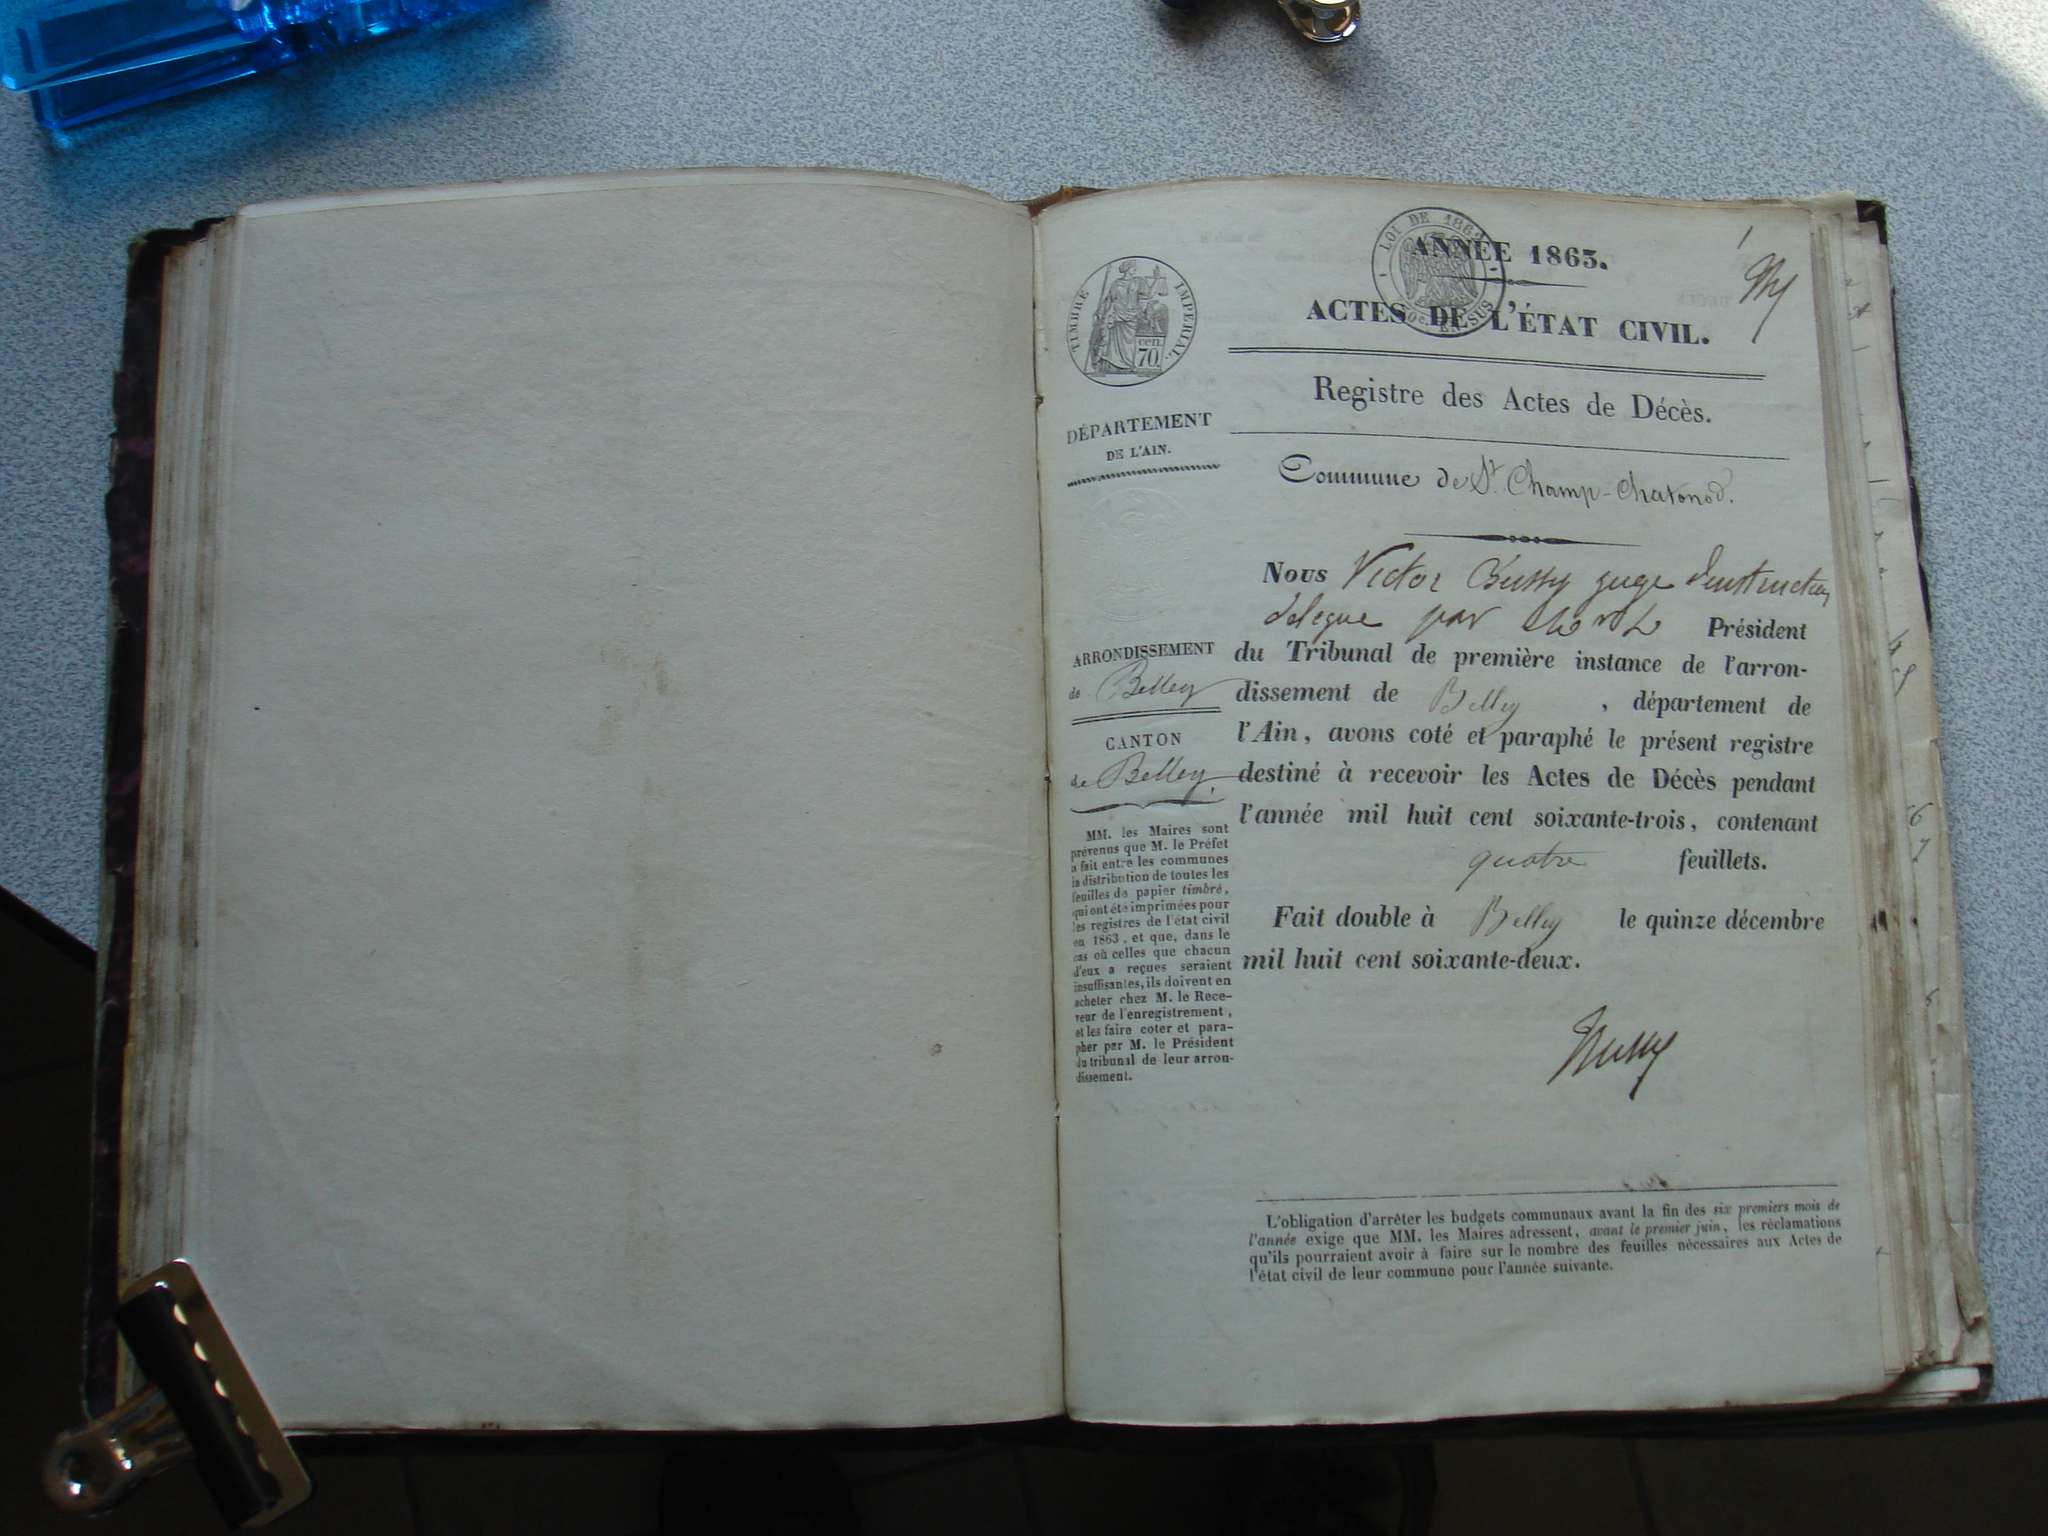 LOI DE 1862
ANNÉE 1863.
1
TIMBRE IMPERIAL.
cen.
70.
EN SUS
ACTES DE L'ÉTAT CIVIL.
Registre des Actes de Décès.
Commune de St. Champ-Chatonod.
DÉPARTEMENT
DE L'AIN.
ARRONDISSEMENT
de Belley
CANTON
de Belley
MM. les Maires sont
prévenus que M. le Préfet
a fait entre les communes
la distribution de toutes les
feuilles de papier timbré,
qui ont été imprimées pour
les registres de l'état civil
en 1863, et que, dans le
cas où celles que chacun
d'eux a reçues seraient
insuffisantes, ils doivent en
acheter chez M. le Rece-
veur de l'enregistrement,
et les faire coter et para-
pher par M. le Président
du tribunal de leur arron-
dissement.
Nous Victor Bussy juge d'instruction
délégué par Président
du Tribunal de première instance de l'arron-
dissement de Belley, département de
l'Ain, avons coté et paraphé le présent registre
destiné à recevoir les Actes de Décès pendant
l'année mil huit cent soixante-trois, contenant
quatre feuillets.
Fait double à Belley le quinze décembre
mil huit cent soixante-deux.
Bussy
L'obligation d'arrêter les budgets communaux avant la fin des six premiers mois de
l'année exige que MM. les Maires adressent, avant le premier juin, les réclamations
qu'ils pourraient avoir à faire sur le nombre des feuilles nécessaires aux Actes de
l'état civil de leur commune pour l'année suivante.